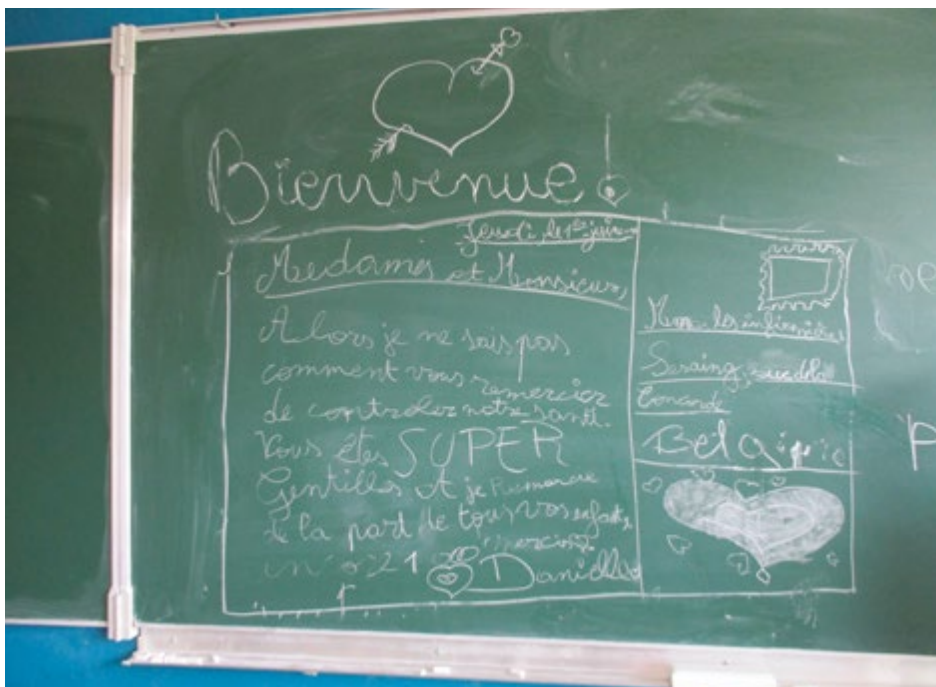 Bienvenue !
Jeudi, le 1er juin
Medames et Monsieur,
Alors je ne sais pas
comment vous remercier
de controler notre santé.
Vous êtes SUPER
Gentilles et je
de la part de tous vos enfants
Danielle
Mme les infirmières
Seraing, rue de la
Belgique